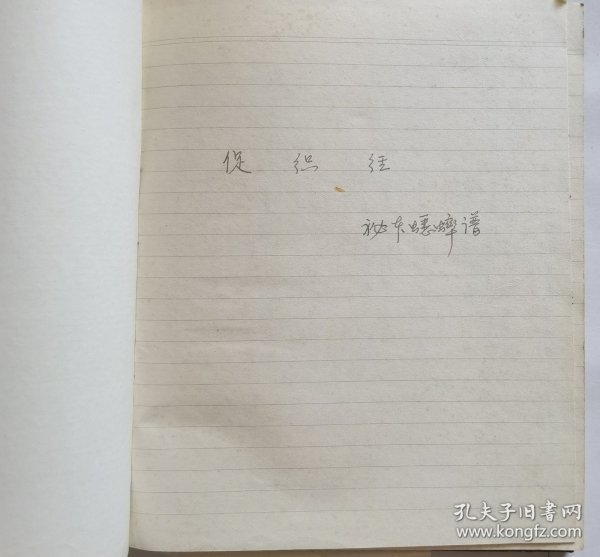 促织经
秘本蟋蟀谱
孔夫子旧书网
www.kongfz.com